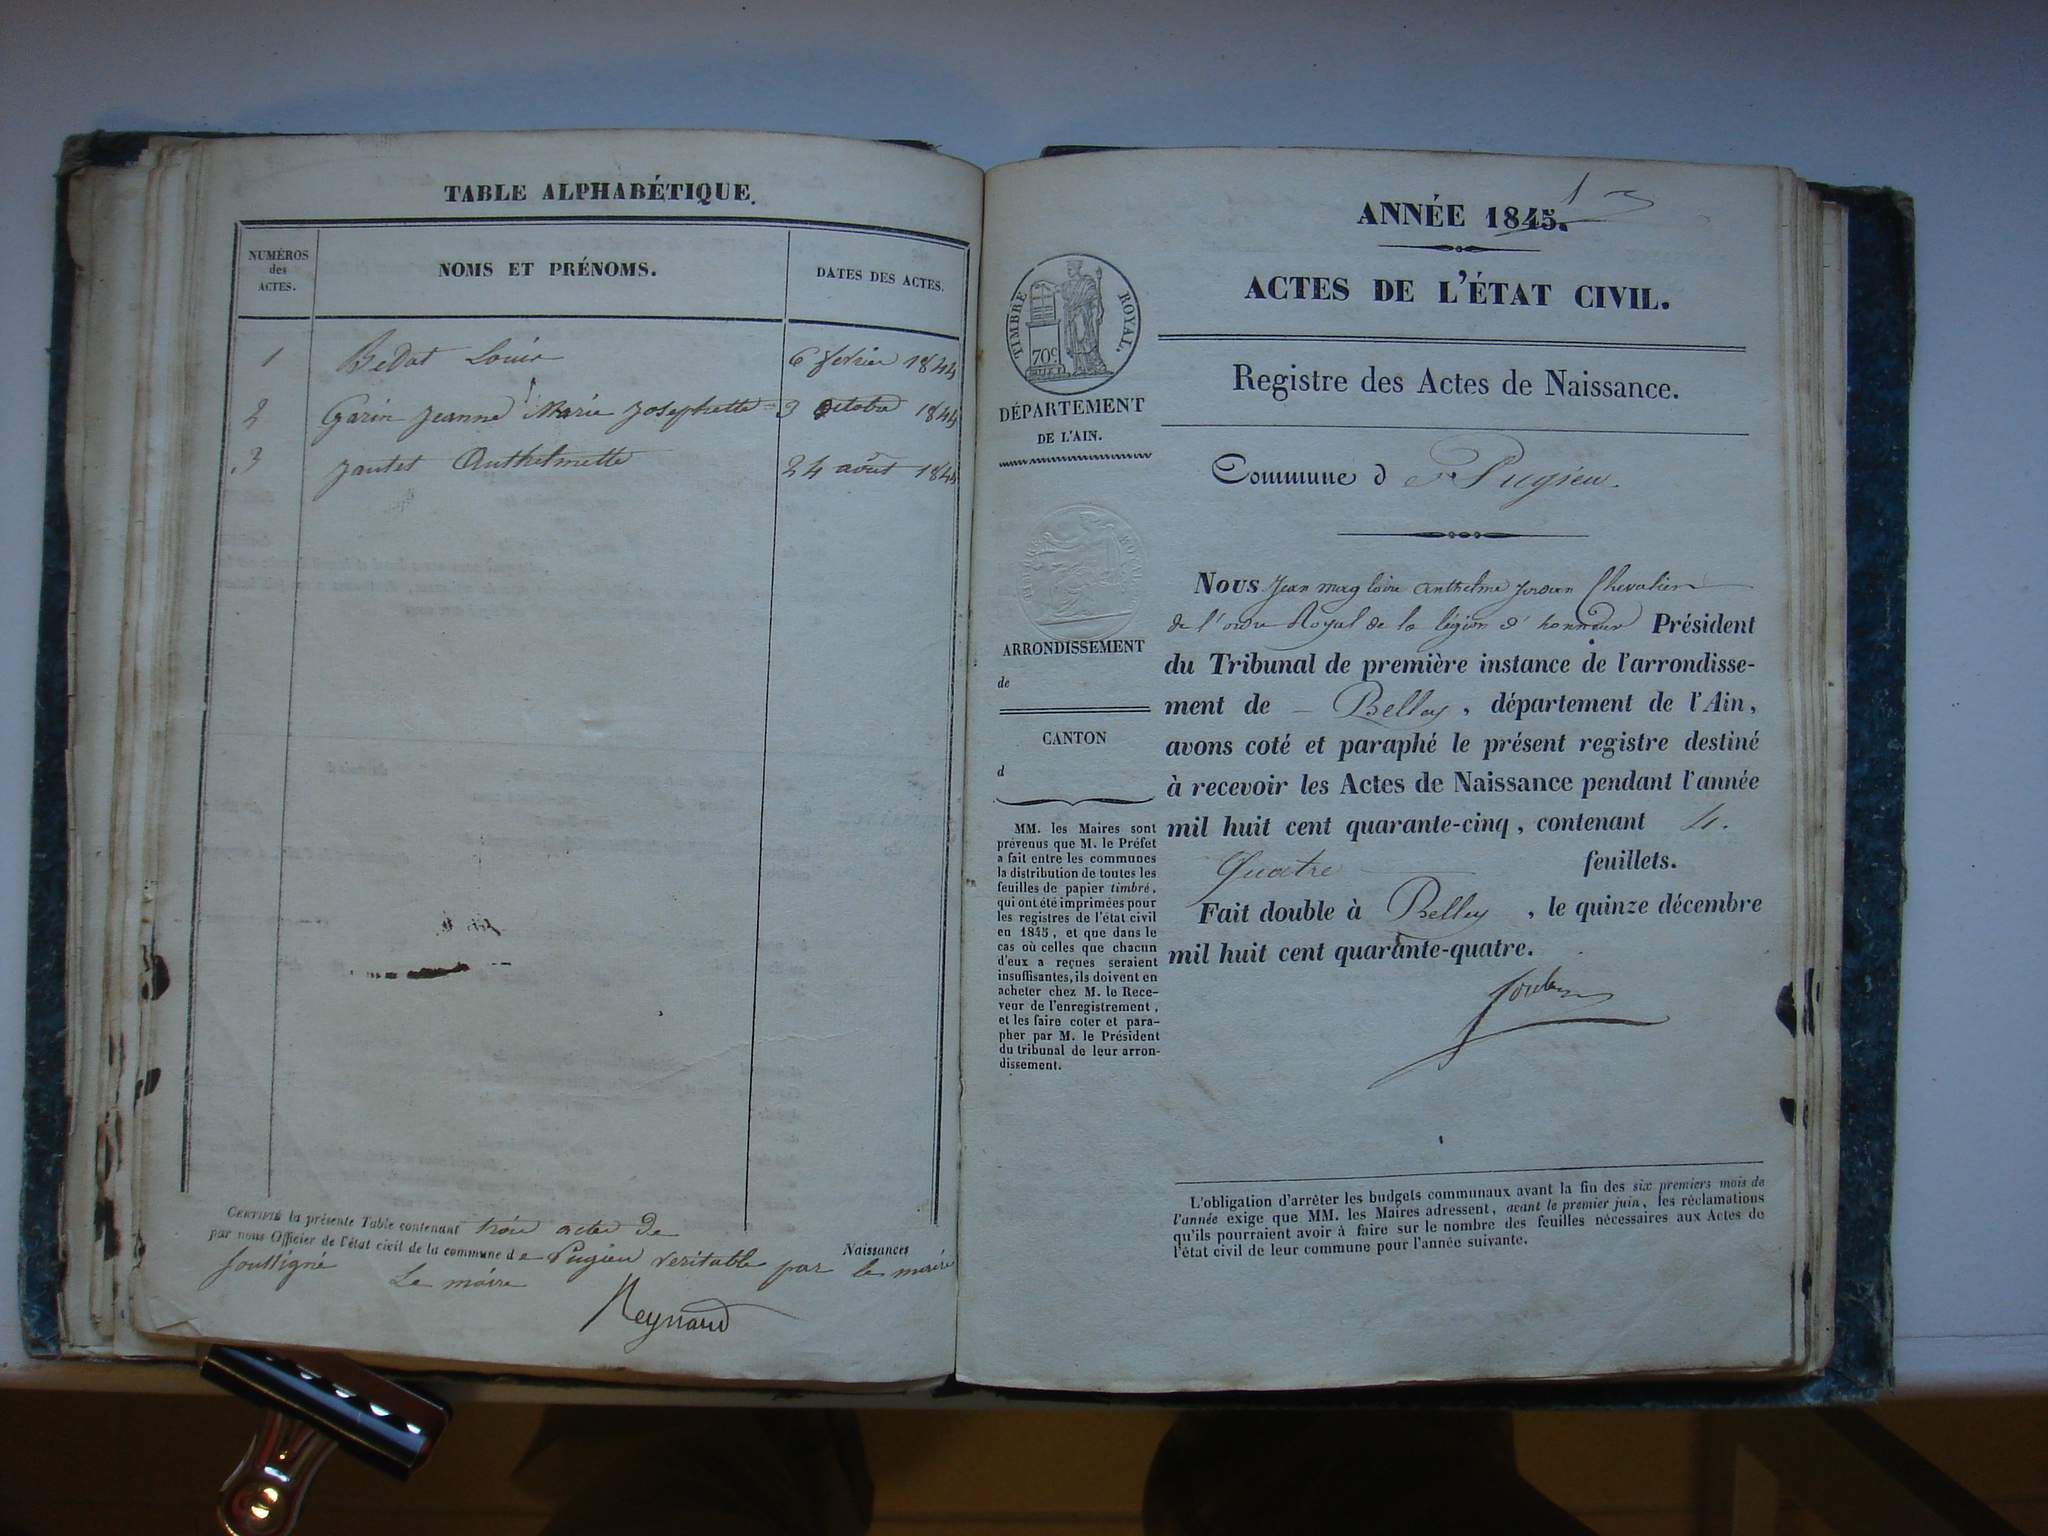 TABLE ALPHABÉTIQUE.
NUMÉROS
des
ACTES.
NOMS ET PRÉNOMS.
DATES DES ACTES.
1 Bedat Louis 6 fevrier 1844
2 Garin Jeanne Marie Josephette 3 Octobre 1844
3 Jantet Anthelmette 24 août 1844
CERTIFIÉ la présente Table contenant trois actes de Naissances
par nous Officier de l'état civil de la commune de Pugieu veritable par le maire
soussigné Le maire
Reynaud
1
ANNÉE 1845.
ACTES DE L'ÉTAT CIVIL.
Registre des Actes de Naissance.
Commune d e Pugieu.
TIMBRE ROYAL.
70c
DÉPARTEMENT
DE L'AIN.
ARRONDISSEMENT
de
CANTON
d
MM. les Maires sont
prévenus que M. le Préfet
a fait entre les communes
la distribution de toutes les
feuilles de papier timbré,
qui ont été imprimées pour
les registres de l'état civil
en 1845, et que dans le
cas où celles que chacun
d'eux a reçues seraient
insuffisantes, ils doivent en
acheter chez M. le Rece-
veur de l'enregistrement,
et les faire coter et para-
pher par M. le Président
du tribunal de leur arron-
dissement.
Nous Jean magloire anthelme Jordan Chevalier
de l'ordre Royal de la légion d'honneur Président
du Tribunal de première instance de l'arrondisse-
ment de – Belley, département de l'Ain,
avons coté et paraphé le présent registre destiné
à recevoir les Actes de Naissance pendant l'année
mil huit cent quarante-cinq, contenant 4.
Quatre feuillets.
Fait double à Belley, le quinze décembre
mil huit cent quarante-quatre.
Jordan
L'obligation d'arrêter les budgets communaux avant la fin des six premiers mois de
l'année exige que MM. les Maires adressent, avant le premier juin, les réclamations
qu'ils pourraient avoir à faire sur le nombre des feuilles nécessaires aux Actes de
l'état civil de leur commune pour l'année suivante.